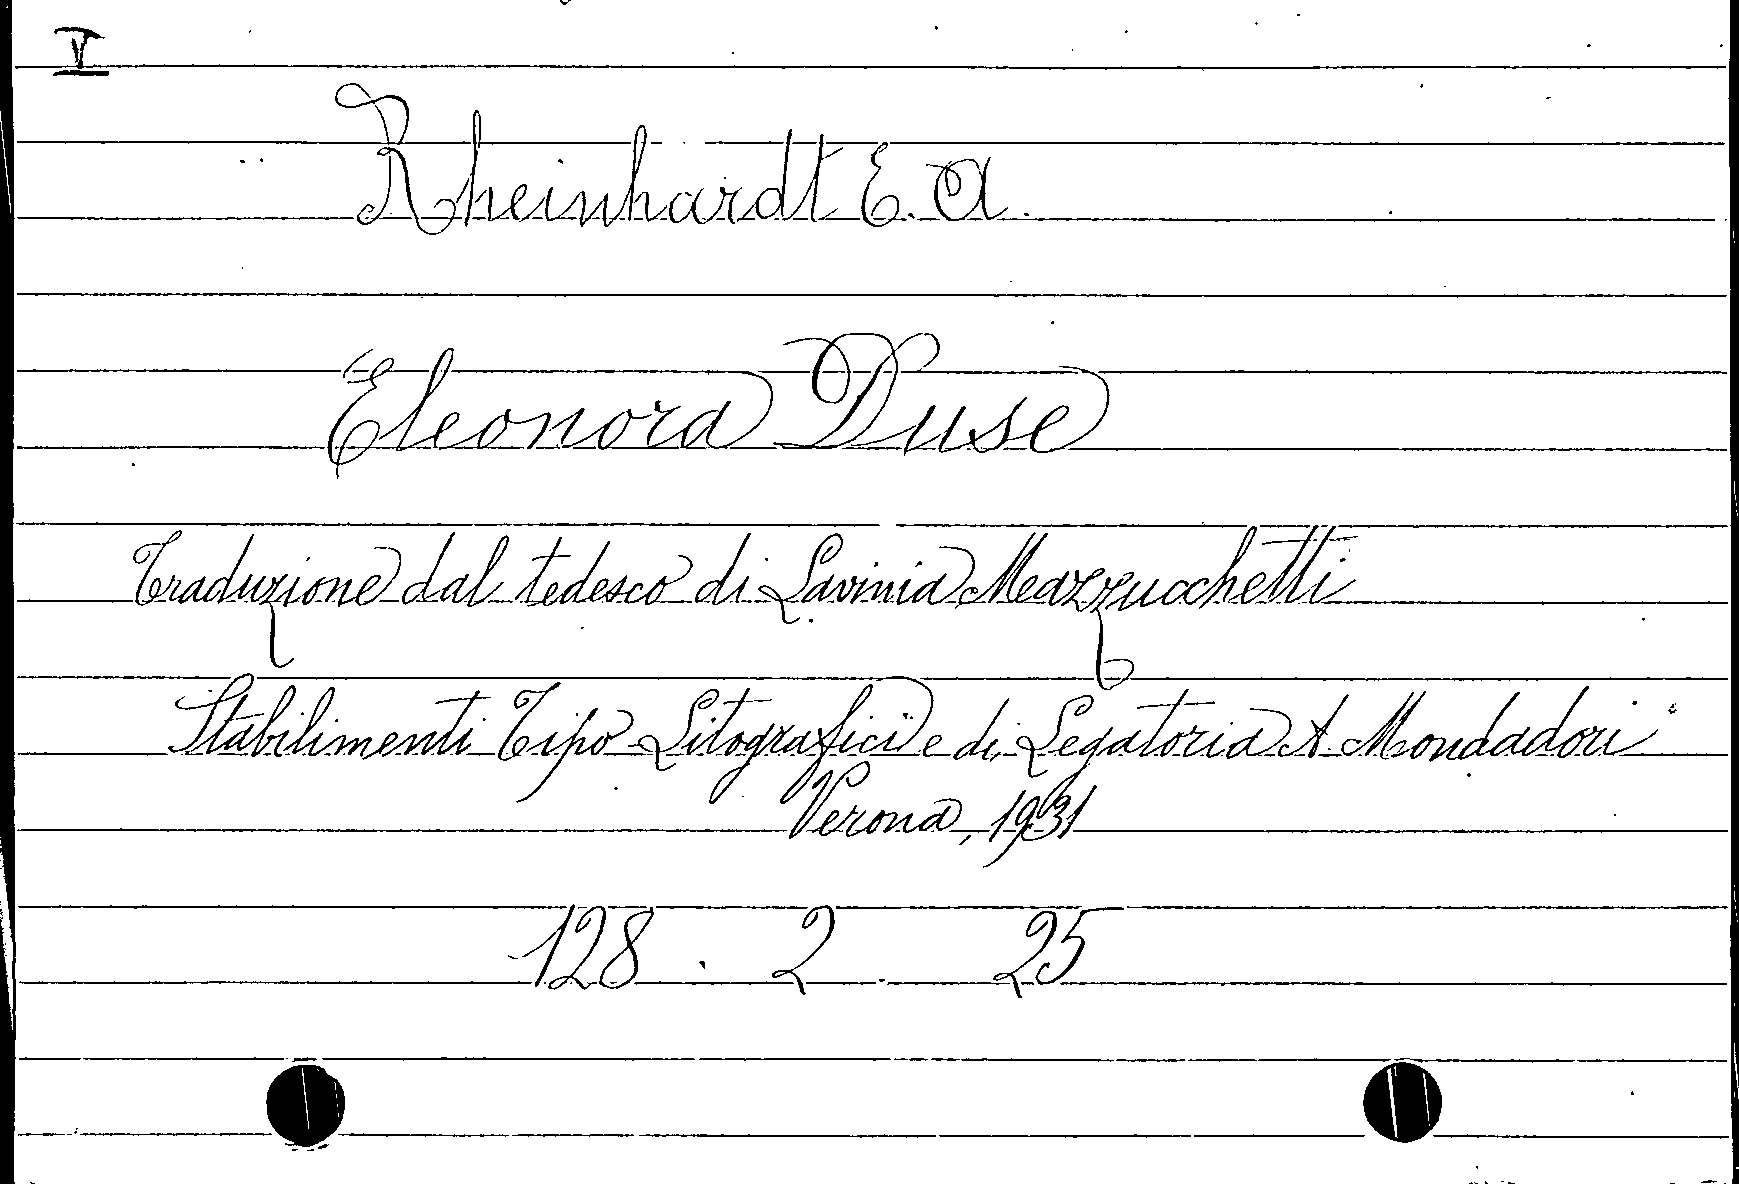 V
Rheinhardt E. A.
Eleonora Duse
Traduzione dal tedesco di Lavinia Mazzucchetti
Stabilimenti Tipo Litografici e di Legatoria A Mondadori
Verona, 1931
128 . 2 . 25